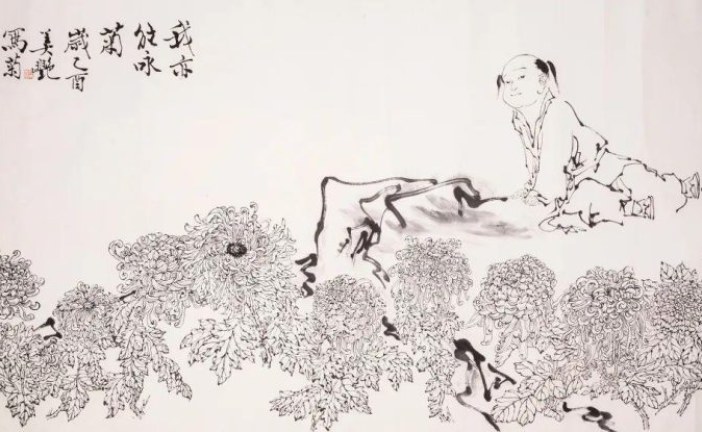 我亦
能咏
菊
岁乙酉
美艳
写菊